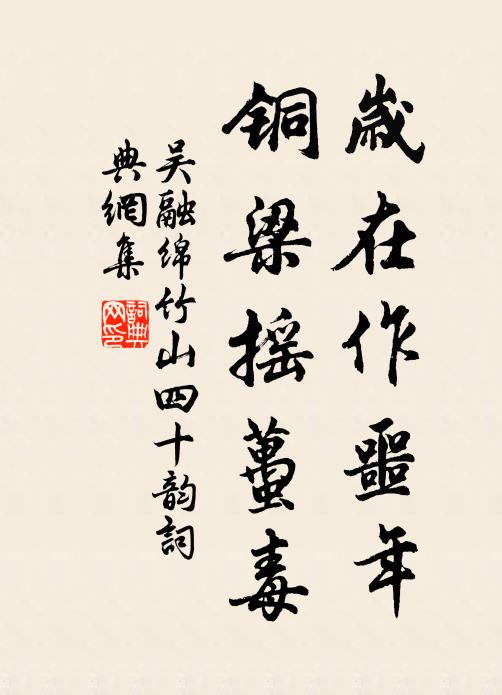 歲在作噩年
銅梁摇蠆毒
吴融绵竹山四十韵詞
典網集
詞典网印